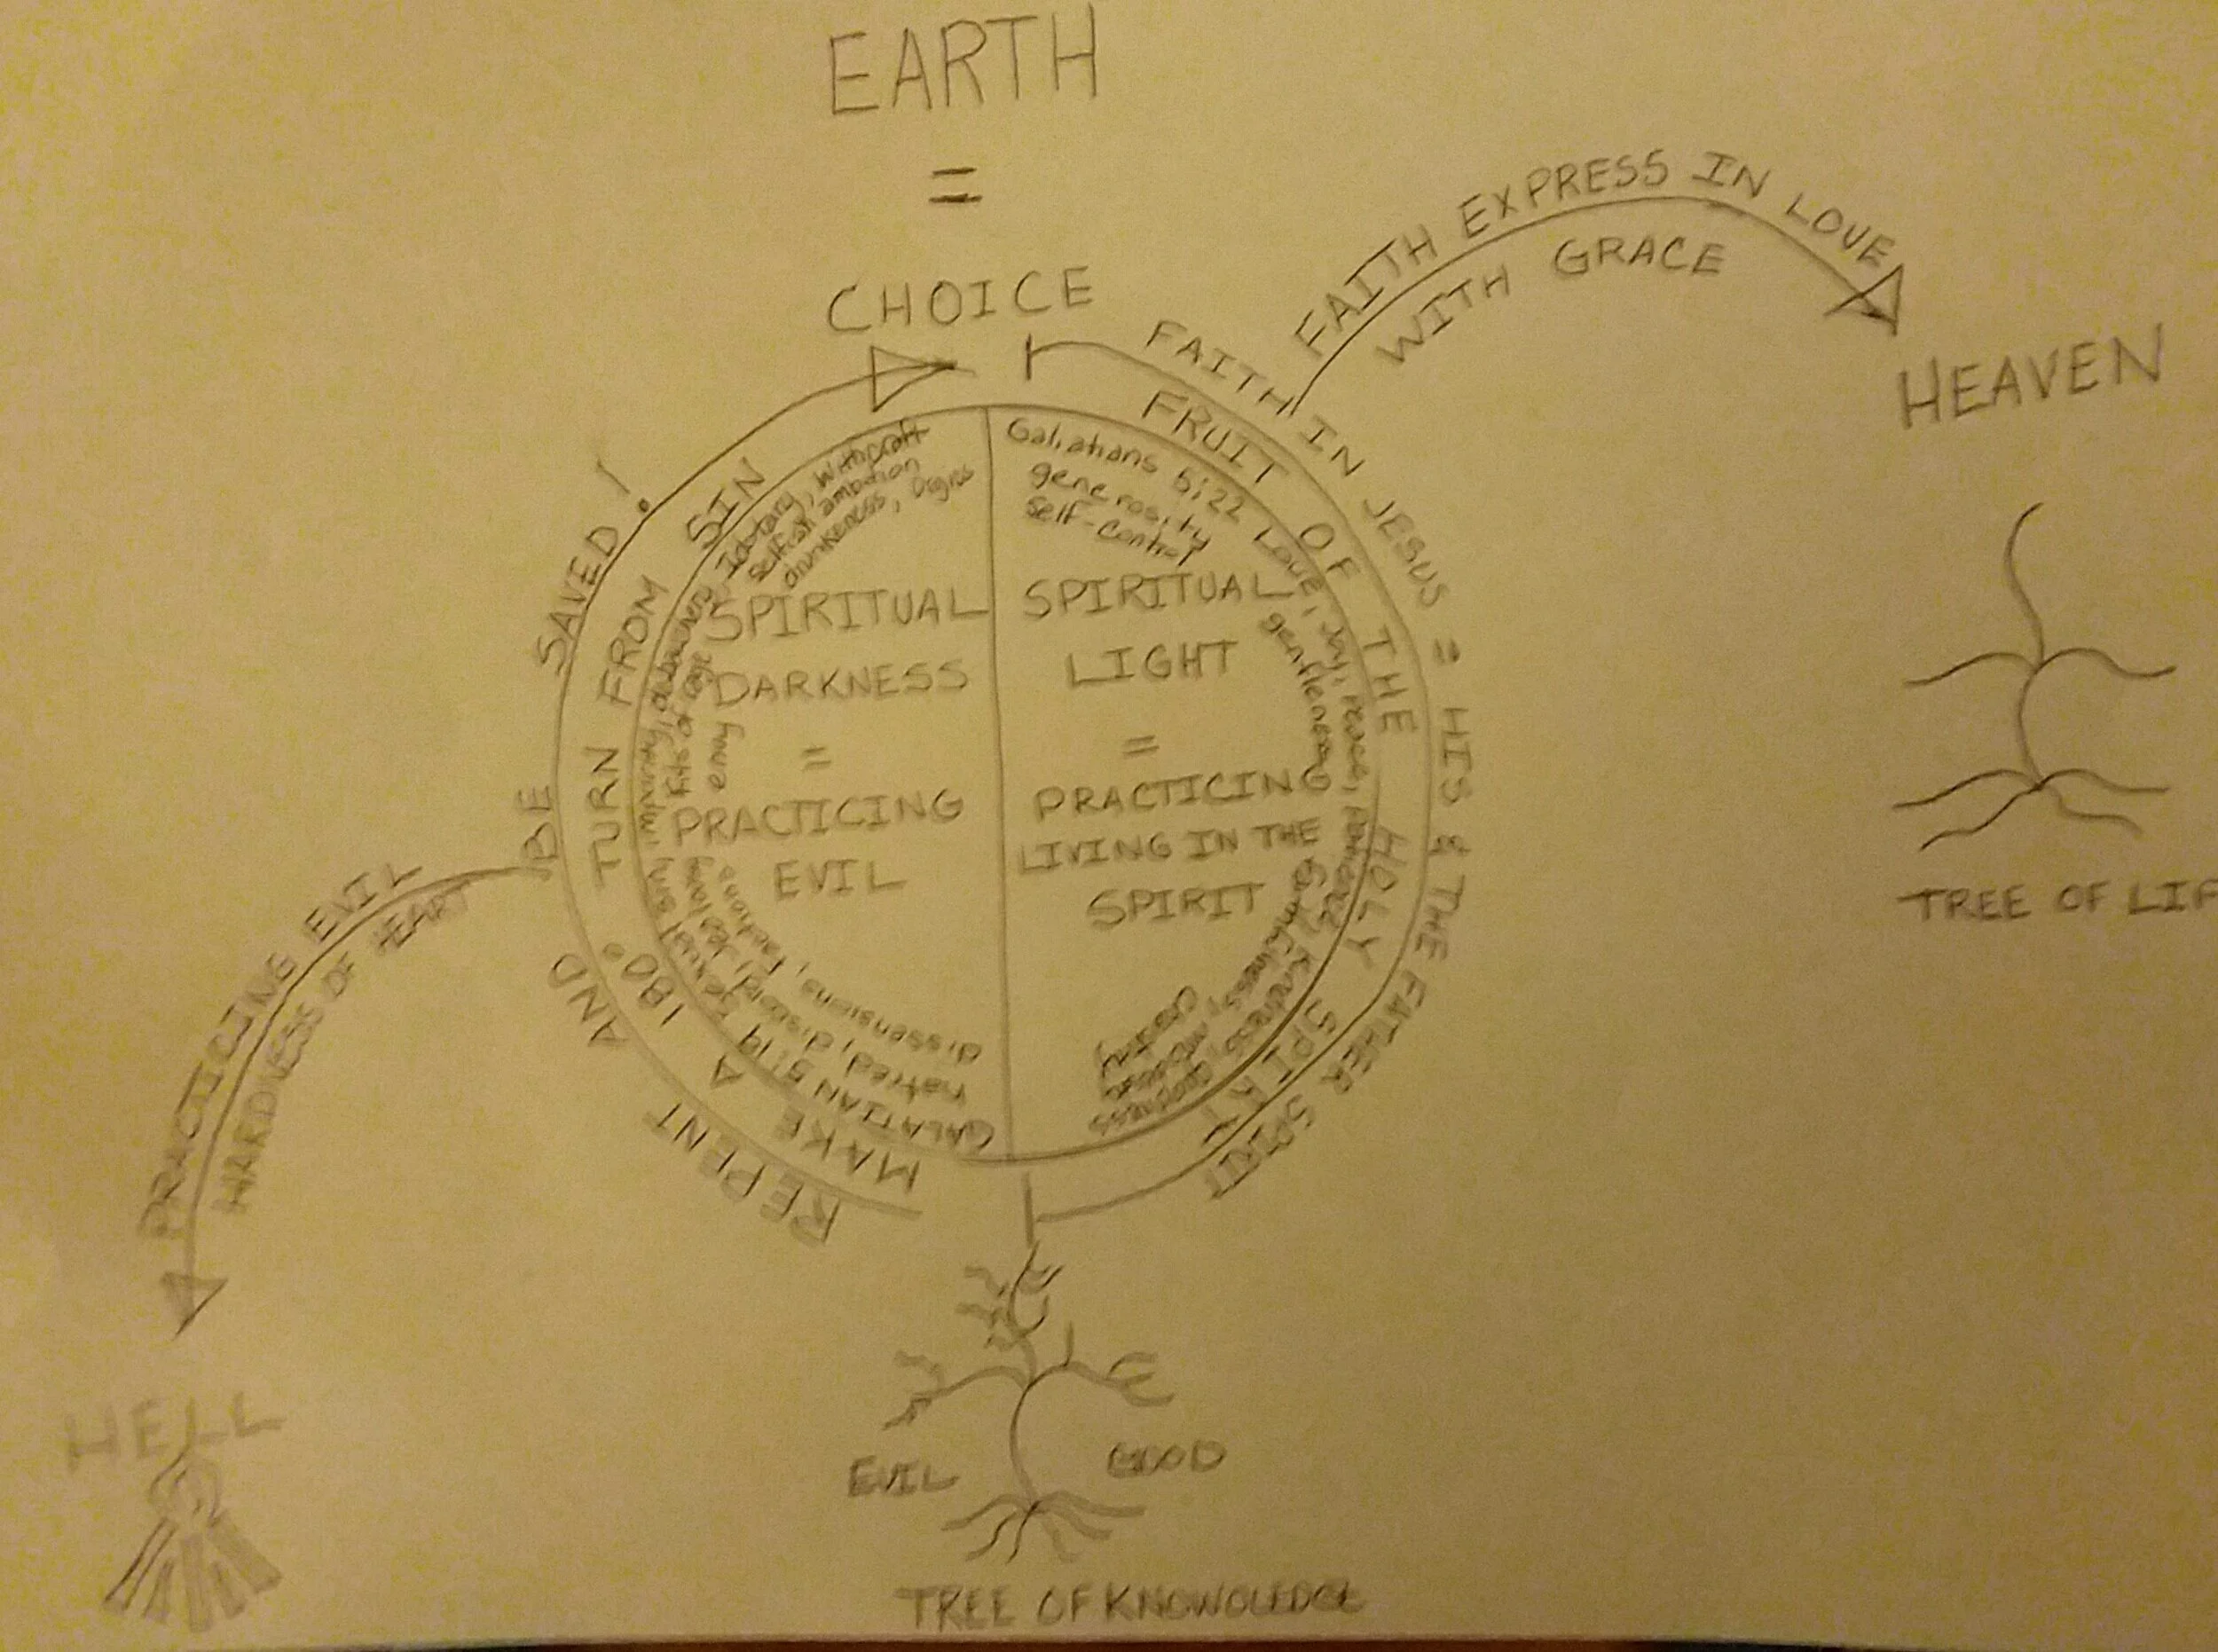 EARTH
=
CHOICE
FAITH EXPRESS IN LOVE
WITH GRACE
HEAVEN
TREE OF LIF
FAITH IN JESUS = HIS & THE FATHER SPIRIT
FRUIT OF THE HOLY SPIRT
Galiatians 5:22 Love, Joy, Peace, patience, kindness, goodness
generosity
self-control
gentleness
faithfulness,
SPIRITUAL
LIGHT
=
PRACTICING
LIVING IN THE
SPIRIT
REPENT AND BE SAVED!
MAKE A 180° TURN FROM SIN
GALATIAN 5:19 sexual sin, impurity, Idolatary, Witchcraft
hatred, discord, jealousy, fits of rage, selfish ambition
dissensions, factions, envy drunkeness, Orgies
SPIRITUAL
DARKNESS
=
PRACTICING
EVIL
PRACTICING EVIL
HARDNESS OF HEART
HELL
EVIL GOOD
TREE OF KNOWOLEDGE